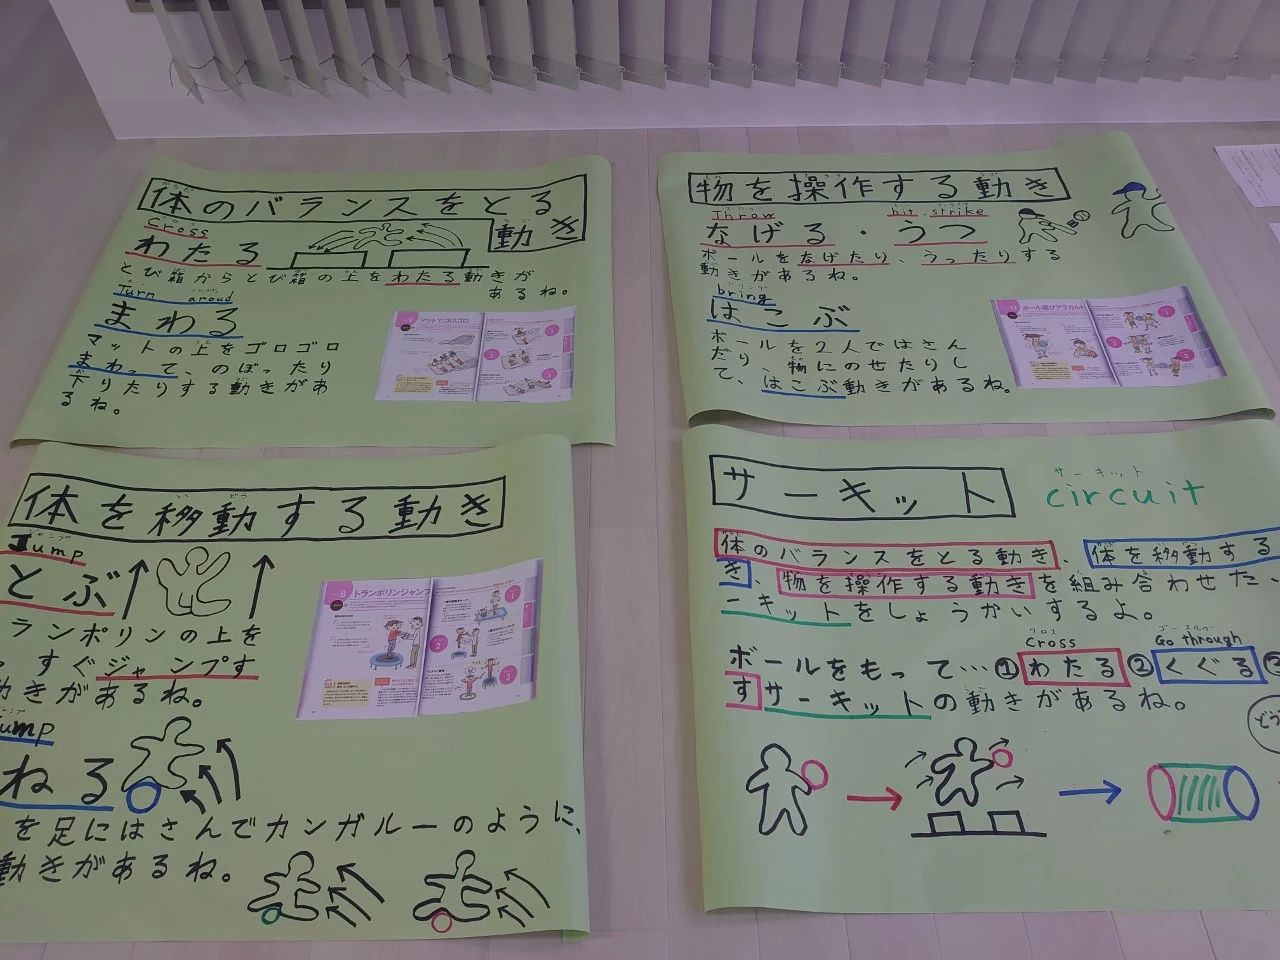 体のバランスをとる
動き
クロス
Cross
わたる
とび箱からとび箱の上をわたる動きが
あるね。
Turn aroud
まわる
マットの上をゴロゴロ
まわって、のぼったり
下りたりする動きがあ
るね。
9 マットでゴロゴロ
物を操作する動き
Throw hit strike
なげる・うつ
ボールをなげたり、うったりする
動きがあるね。
bring
はこぶ
ボールを2人ではさん
だり、物にのせたりし
て、はこぶ動きがあるね。
11 ボール運びアラカルト
体を移動する動き
ジャンプ
Jump
とぶ
ランポリンの上を
すぐジャンプす
動きがあるね。
8 トランポリンジャンプ
Jump
ねる
を足にはさんでカンガルーのように、
動きがあるね。
サーキット
サーキット
circuit
体のバランスをとる動き、体を移動する
き、物を操作する動きを組み合わせた、
ーキットをしょうかいするよ。
クロス ゴースルー
Cross Go through
ボールをもって…①わたる②くぐる③
すサーキットの動きがあるね。
どう